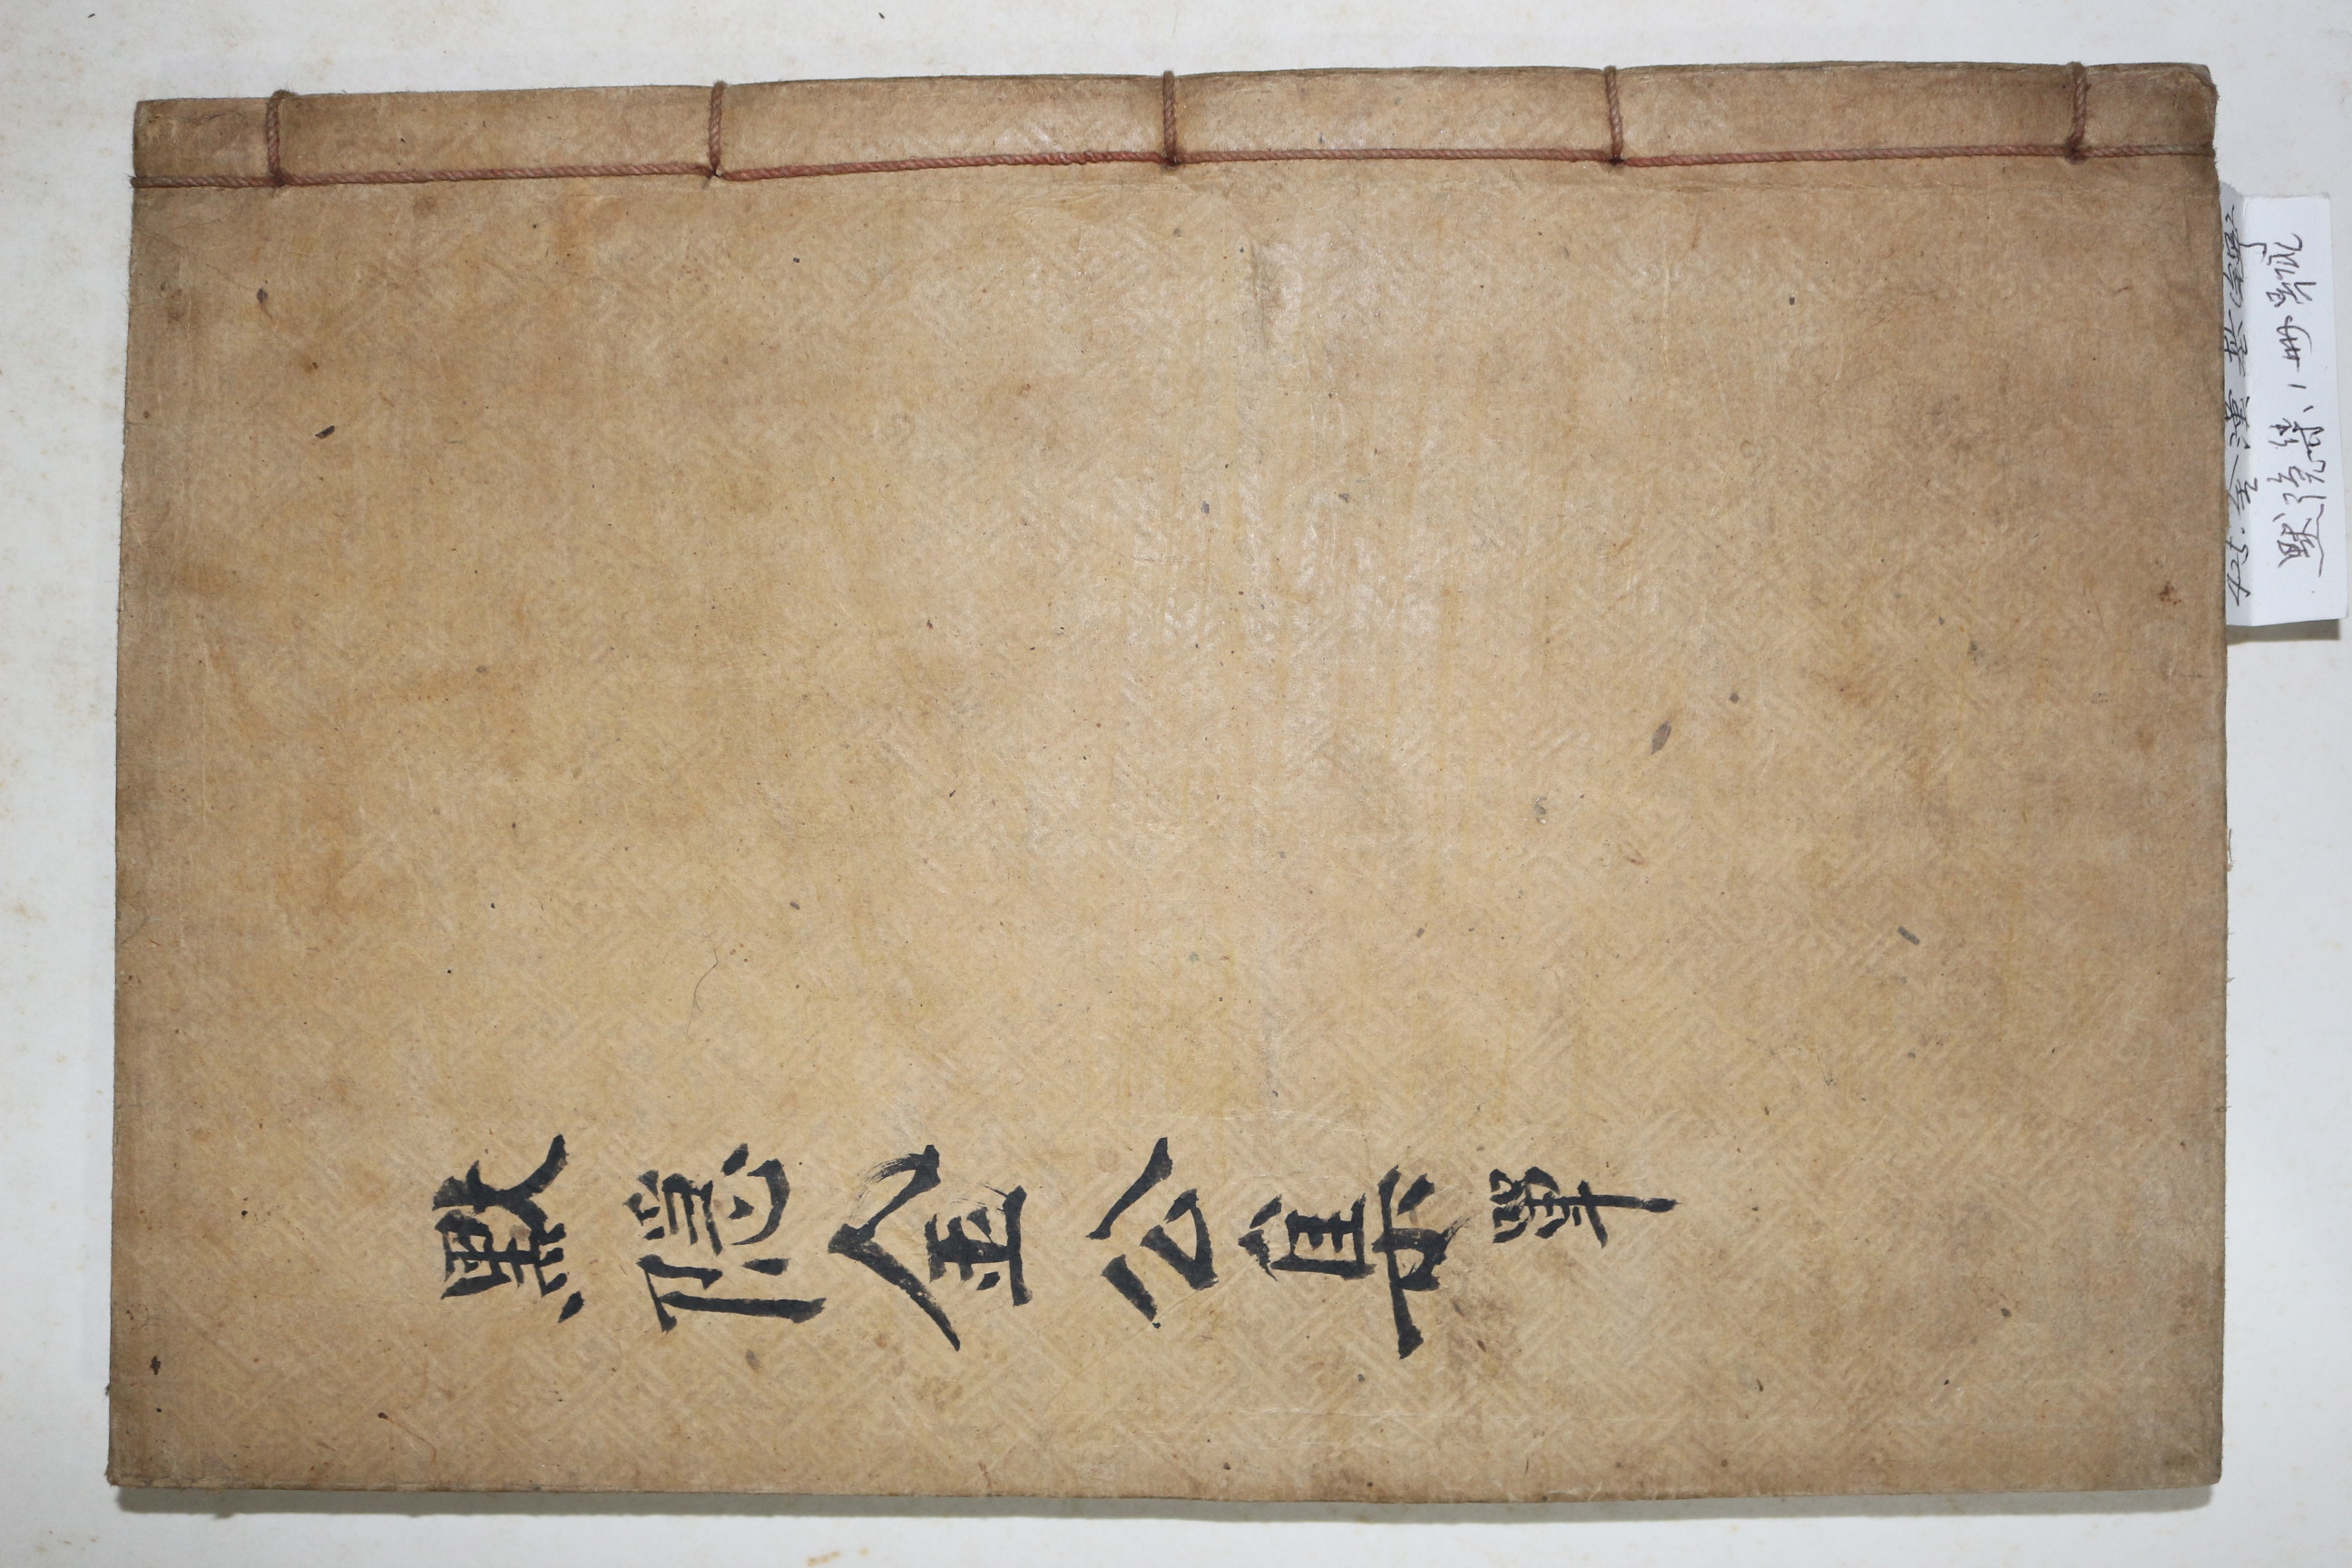 默隱金公集 單
425. 金漢基
默隐集 1冊